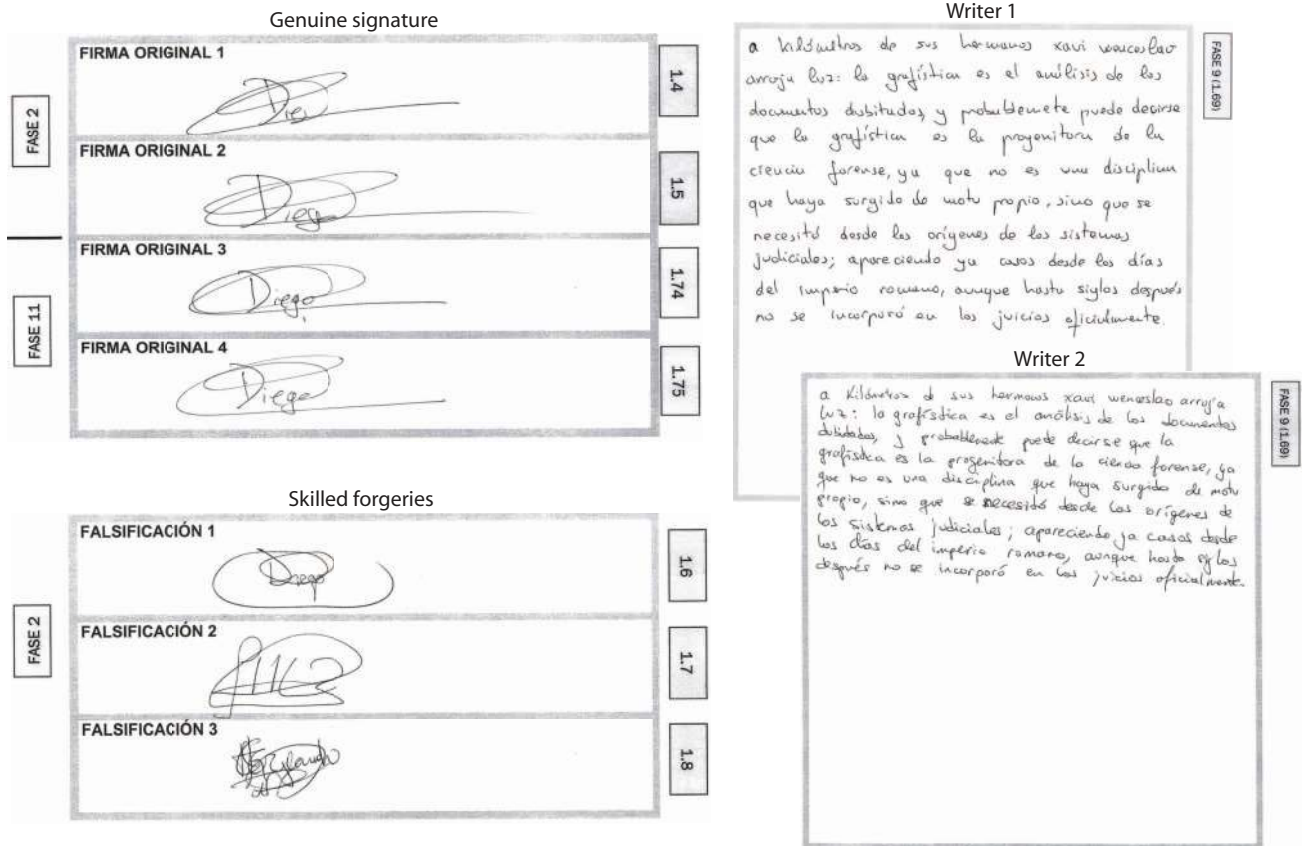 Genuine signature
FIRMA ORIGINAL 1
Diego
1.4
FASE 2
FIRMA ORIGINAL 2
Diego
1.5
FIRMA ORIGINAL 3
Diego
1.74
FASE 11
FIRMA ORIGINAL 4
Diego
1.75
Skilled forgeries
FALSIFICACIÓN 1
Diego
1.6
FASE 2
FALSIFICACIÓN 2
1.7
FALSIFICACIÓN 3
1.8
Writer 1
a kilómetros de sus hermanos xavi wenceslao
arroja luz: la grafística es el análisis de los
documentos dubitados, y probablemete puede decirse
que la grafística es la progenitora de la
ciencia forense, ya que no es una disciplina
que haya surgido de motu propio, sino que se
necesitó desde los orígenes de los sistemas
judiciales; apareciendo ya casos desde los días
del imperio romano, aunque hasta siglos después
no se incorporó en los juicios oficialmente.
FASE 9 (1.69)
Writer 2
a Kilómetros de sus hermanos xavi wenceslao arroja
luz: la grafística es el análisis de los documentos
dubitados, y probablemente puede decirse que la
grafística es la progenitora de la ciencia forense, ya
que no es una disciplina que haya surgido de motu
propio, sino que se necesitó desde los orígenes de
los sistemas judiciales; apareciendo ya casos desde
los días del imperio romano, aunque hasta siglos
después no se incorporó en los juicios oficialmente.
FASE 9 (1.69)